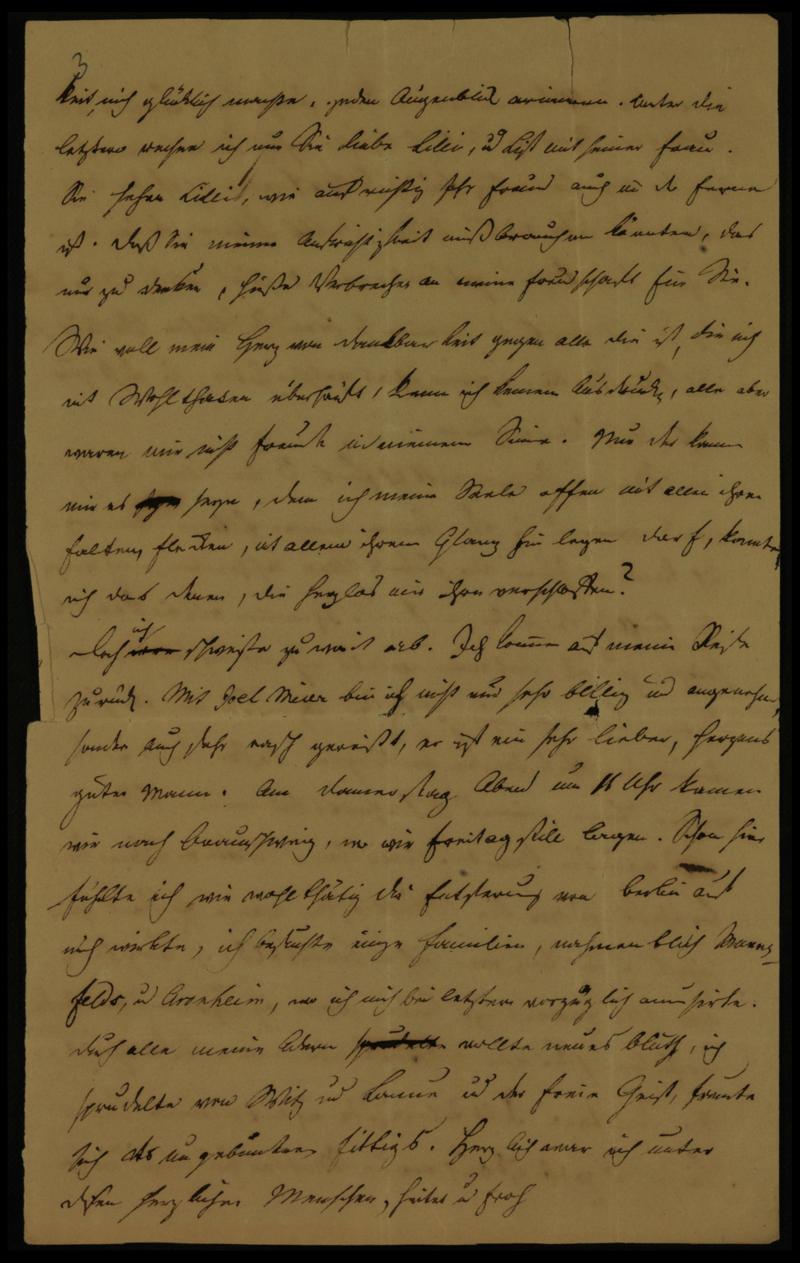 3
keit mich glücklich machte, jeden Augenblick erinnern. Unter die
letztern rechne ich nur Sie liebe Lilli, u List mit seiner Frau.
Sie sehen Lilli, wie aufrichtig Ihr Freund auch in der Ferne
ist. Daß Sie meine Aufrichtigkeit mißbrauchen könnten, das
nur zu denken, hieße Verbrechen an meine Freundschaft für Sie.
Wie voll mein Herz von Dankbarkeit gegen alle die ist, die mich
mit Wohlthaten überhäuft, kann ich keinem ausdrucken, alle aber
waren mir nicht Freunde in meinem Sinne. Nur der kann
mir es seyn, dem ich meine Seele offen mit allen ihren
Falten, Flecken, mit allem ihrem Glanz hin legen darf, konnte
ich das denen, die herzlos mir ihren verschlossen?
Doch ich schweife zu weit ab. Ich komme auf meine Reise
zurück. Mit Joel Meier bin ich nicht nur sehr billig und angenehm,
sondern auch sehr rasch gereist, er ist ein sehr lieber, herzens
guter Mann. Am Donnerstag Abend um 11 Uhr kamen
wir nach Braunschweig, wo wir Freitag still lagen. Schon hier
fühlte ich wie wohlthätig die Entfernung von Berlin auf
mich wirkte, ich besuchte einige Familien, nahmentlich
felds, u Aronheim, wo ich mich bei letztern vorzüglich amusirte.
Durch alle meine Adern rollte neues Bluth, ich
sprudelte von Witz und Laune und der freie Geist, freute
sich des ungebundenen Fittigs. Herzlich war ich unter
diesen herzlichen Menschen, heiter u froh